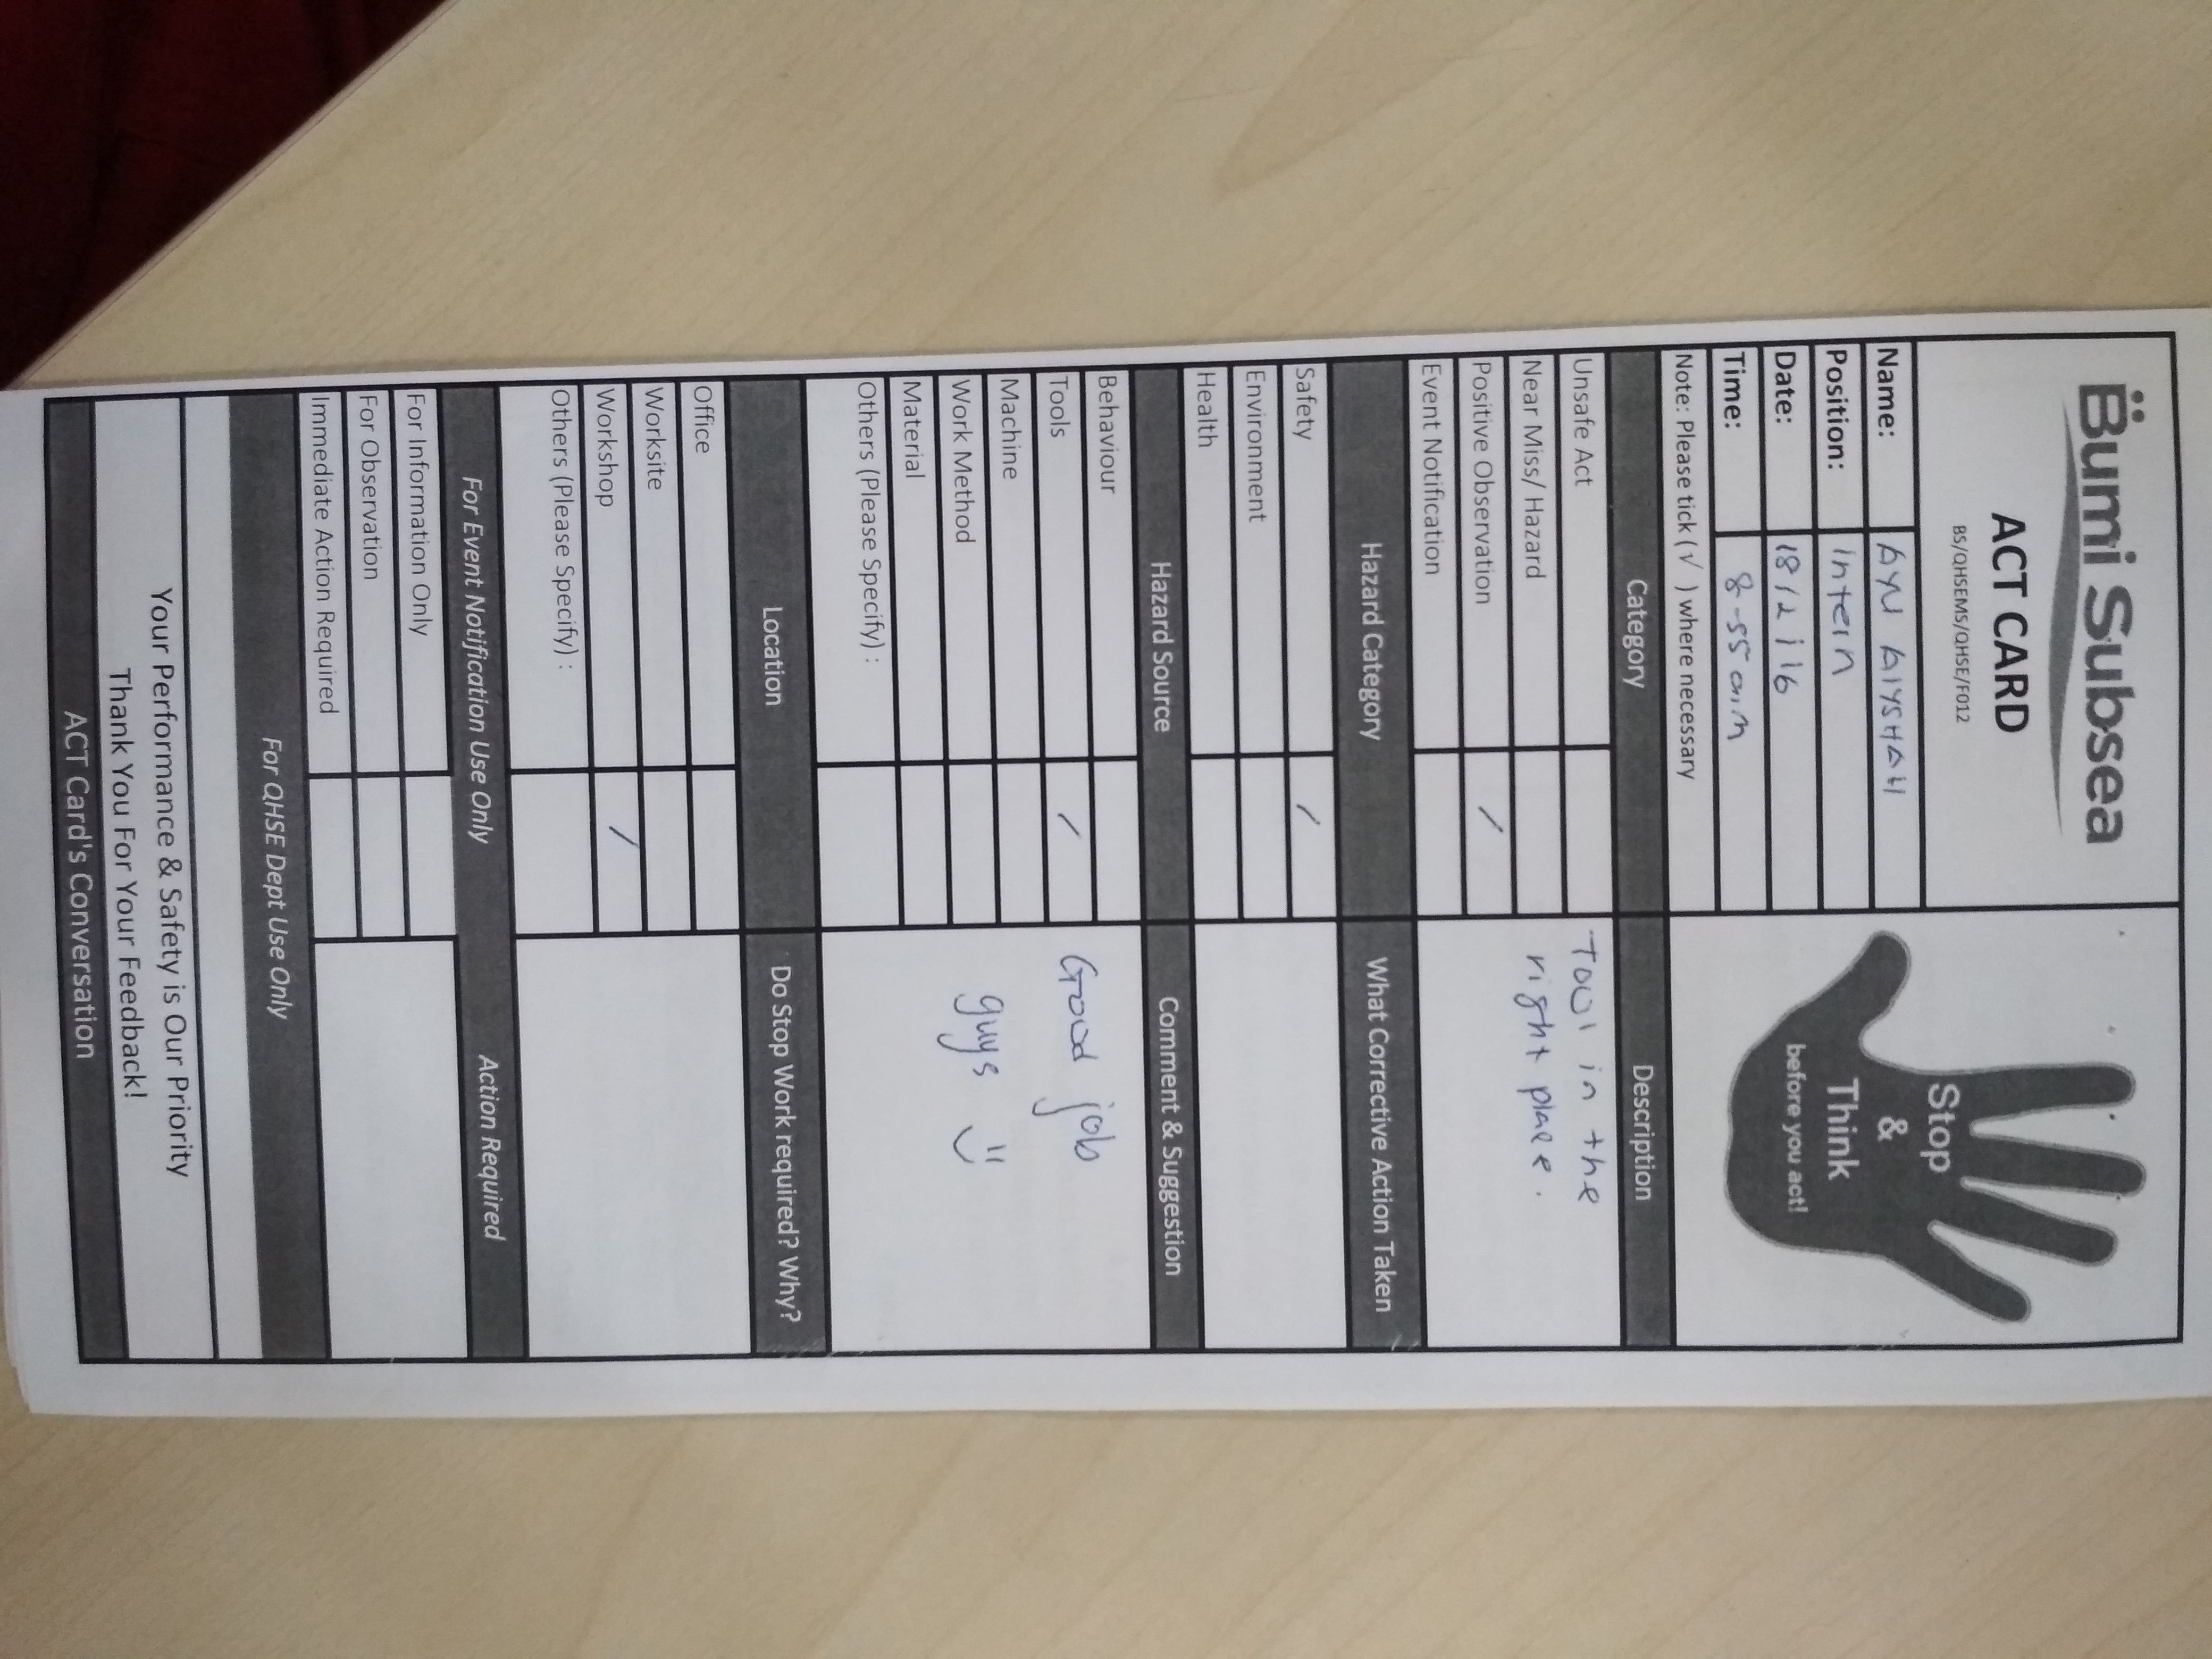 Bumi Subsea
ACT CARD
BS/QHSEMS/QHSE/F012
Stop
&
Think
before you act!
Name: AYU AIYSHAH
Position: Intern
Date: 18/2/16
Time: 8-55 am
Note: Please tick (√ ) where necessary
Category Description
Unsafe Act
Near Miss/ Hazard
Positive Observation /
Event Notification
Tool in the
right place.
Hazard Category What Corrective Action Taken
Safety /
Environment
Health
Hazard Source Comment & Suggestion
Behaviour
Tools /
Machine
Work Method
Material
Others (Please Specify) :
Good job
guys
Location Do Stop Work required? Why?
Office
Worksite
Workshop /
Others (Please Specify) :
For Event Notification Use Only Action Required
For Information Only
For Observation
Immediate Action Required
For QHSE Dept Use Only
Your Performance & Safety is Our Priority
Thank You For Your Feedback!
ACT Card's Conversation